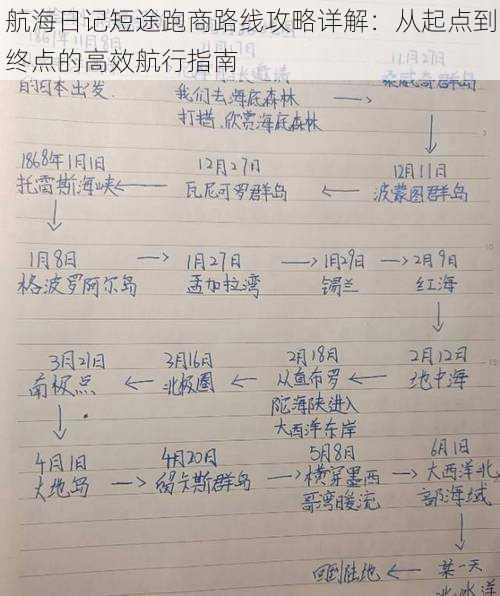 航海日记短途跑商路线攻略详解：从起点到
终点的高效航行指南
11月27日
桑威奇群岛
的日本出发
我们去海底森林
打猎,欣赏海底森林
1868年1月1日
托雷斯海峡
12月27日
瓦尼可罗群岛
12月11日
波蒙图群岛
1月8日
格波罗阿尔岛
1月27日
孟加拉湾
1月29日
锡兰
2月9日
红海
3月21日
南极点
3月16日
北极圈
2月18日
从直布罗
陀海陕进入
大西洋东岸
2月12日
地中海
4月1日
火地岛
4月20日
留卡斯群岛
5月8日
横穿墨西
哥湾暖流
6月1日
大西洋北
部海域
回到陆地
某一天
北冰洋